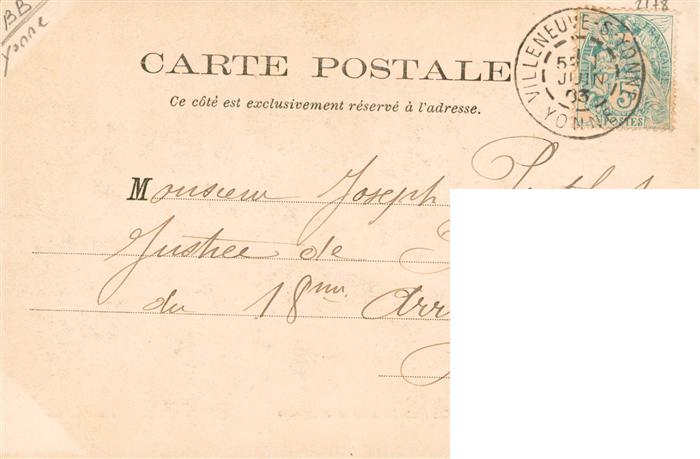 BB
Yonne
2178
CARTE POSTALE
Ce côté est exclusivement réservé à l'adresse.
VILLENEUVE-S-YONNE
JUIN
03
YONNE
5
POSTES
Monsieur Joseph
Justice de
du 18me. Arr